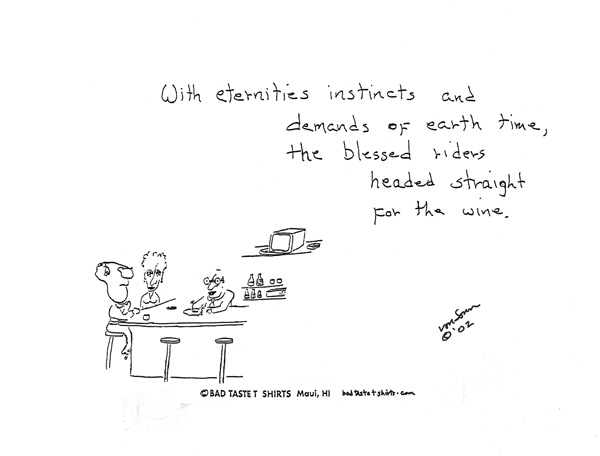 With eternities instincts and
demands of earth time,
the blessed riders
headed straight
for the wine.
© '02
© BAD TASTE T SHIRTS Maui, HI badtastetshirts.com